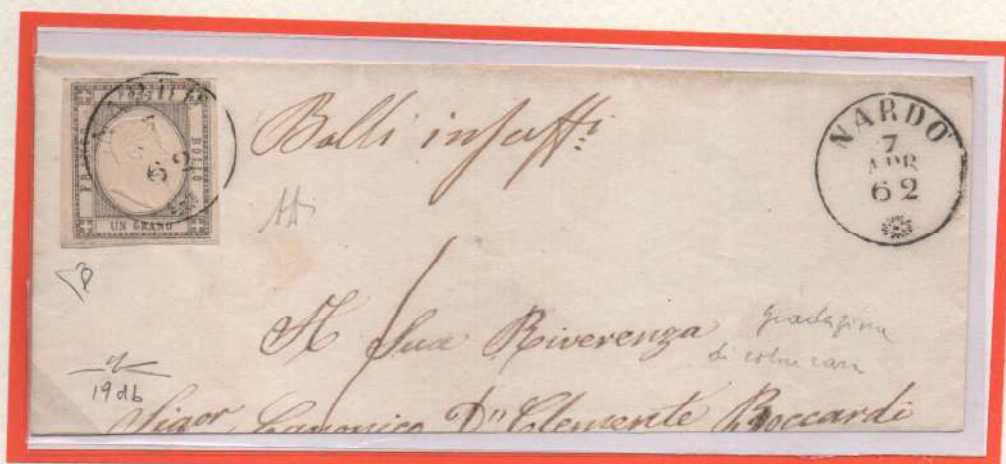 FRANCO
BOLLO
UN GRANO
62
Bolli insuffi:
NARDO
7
APR
62
A Sua Riverenza
gradazione
di colore rara
19 db
Sigor Canonico Dn Clemente Boccardi